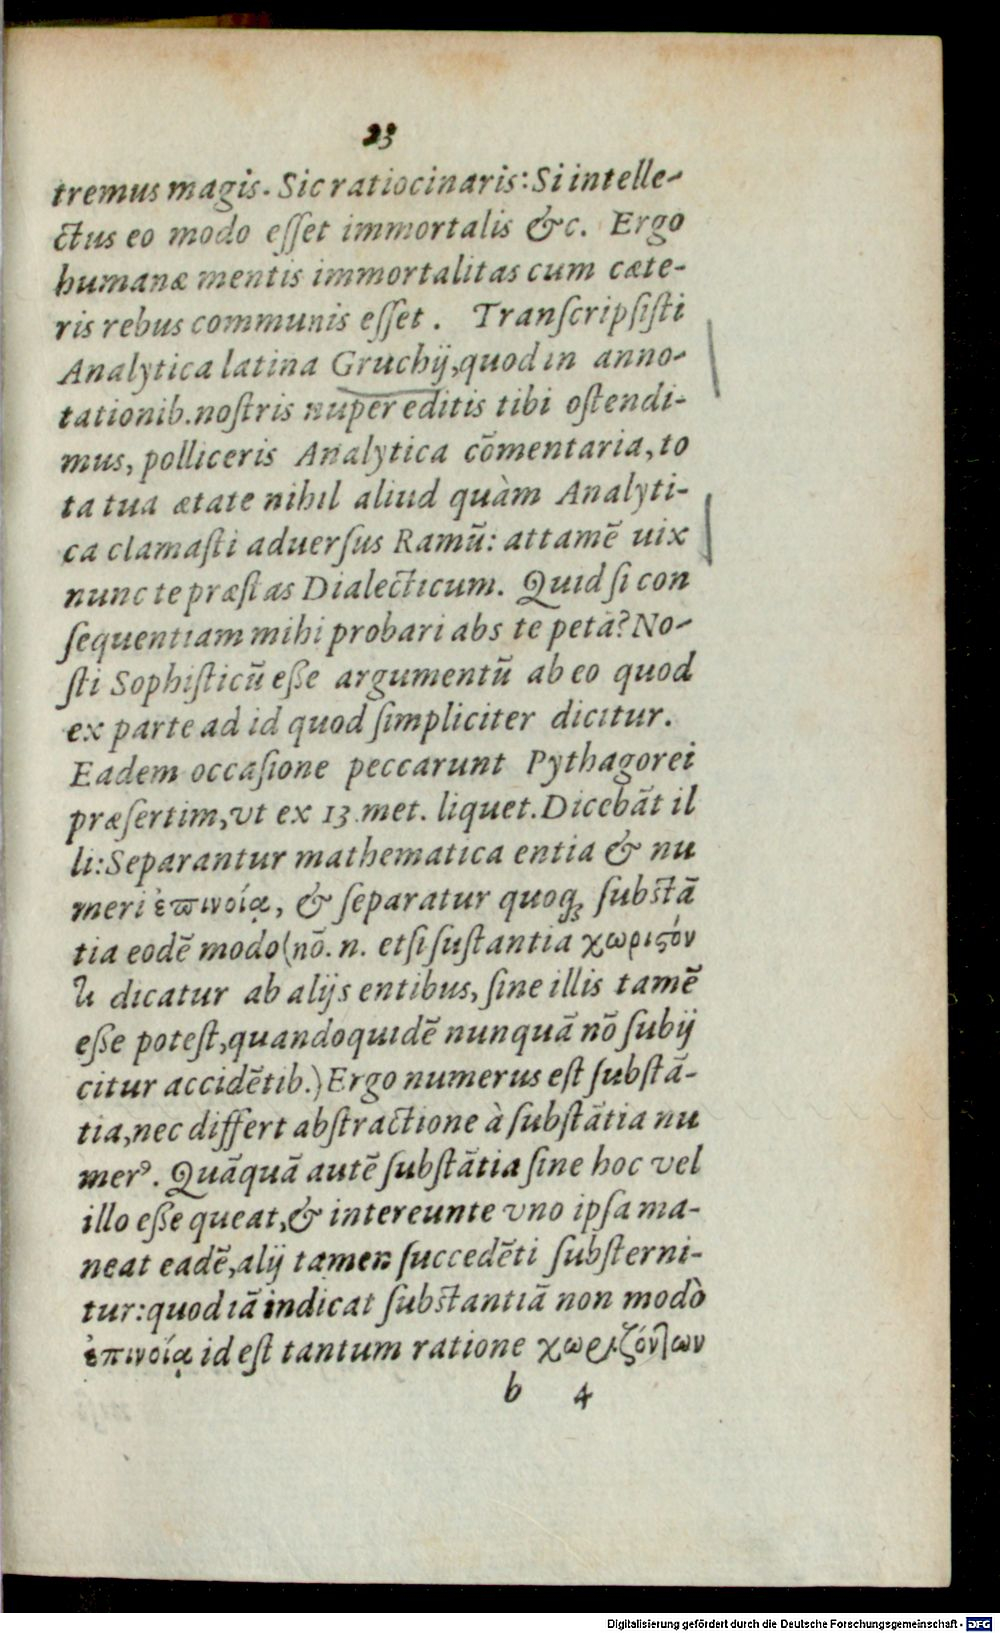 23
tremus magis. Sic ratiocinaris: Si intelle-
ctus eo modo eſſet immortalis &c. Ergo
humanæ mentis immortalitas cum cæte-
ris rebus communis eſſet. Tranſcripſiſti
Analytica latina Gruchij, quod in anno-
tationib. noſtris nuper editis tibi oſtendi-
mus, polliceris Analytica cōmentaria, to
ta tua ætate nihil aliud quàm Analyti-
ca clamaſti aduerſus Ramū: attamē uix
nunc te præſtas Dialecticum. Quid ſi con
ſequentiam mihi probari abs te petā? No-
ſti Sophiſticū eſſe argumentū ab eo quod
ex parte ad id quod ſimpliciter dicitur.
Eadem occaſione peccarunt Pythagorei
præſertim, vt ex 13. met. liquet. Dicebāt il
li: Separantur mathematica entia & nu
meri ἐπινοίᾳ, & ſeparatur quoq; ſubſtā
tia eodē modo (nō. n. etſi ſuſtantia χωριϛόν
τι dicatur ab alijs entibus, ſine illis tamē
eſſe poteſt, quandoquidē nunquā nō ſubij
citur accidētib.) Ergo numerus eſt ſubſtā-
tia, nec differt abſtractione à ſubſtātia nu
merꝰ. Quāquā autē ſubſtātia ſine hoc vel
illo eſſe queat, & intereunte vno ipſa ma-
neat eadē, alij tamen ſuccedēti ſubſterni-
tur: quod iā indicat ſubſtantiā non modò
ἐπινοίᾳ id eſt tantum ratione χωριζόντων
b 4
Digitalisierung gefördert durch die Deutsche Forschungsgemeinschaft - DFG